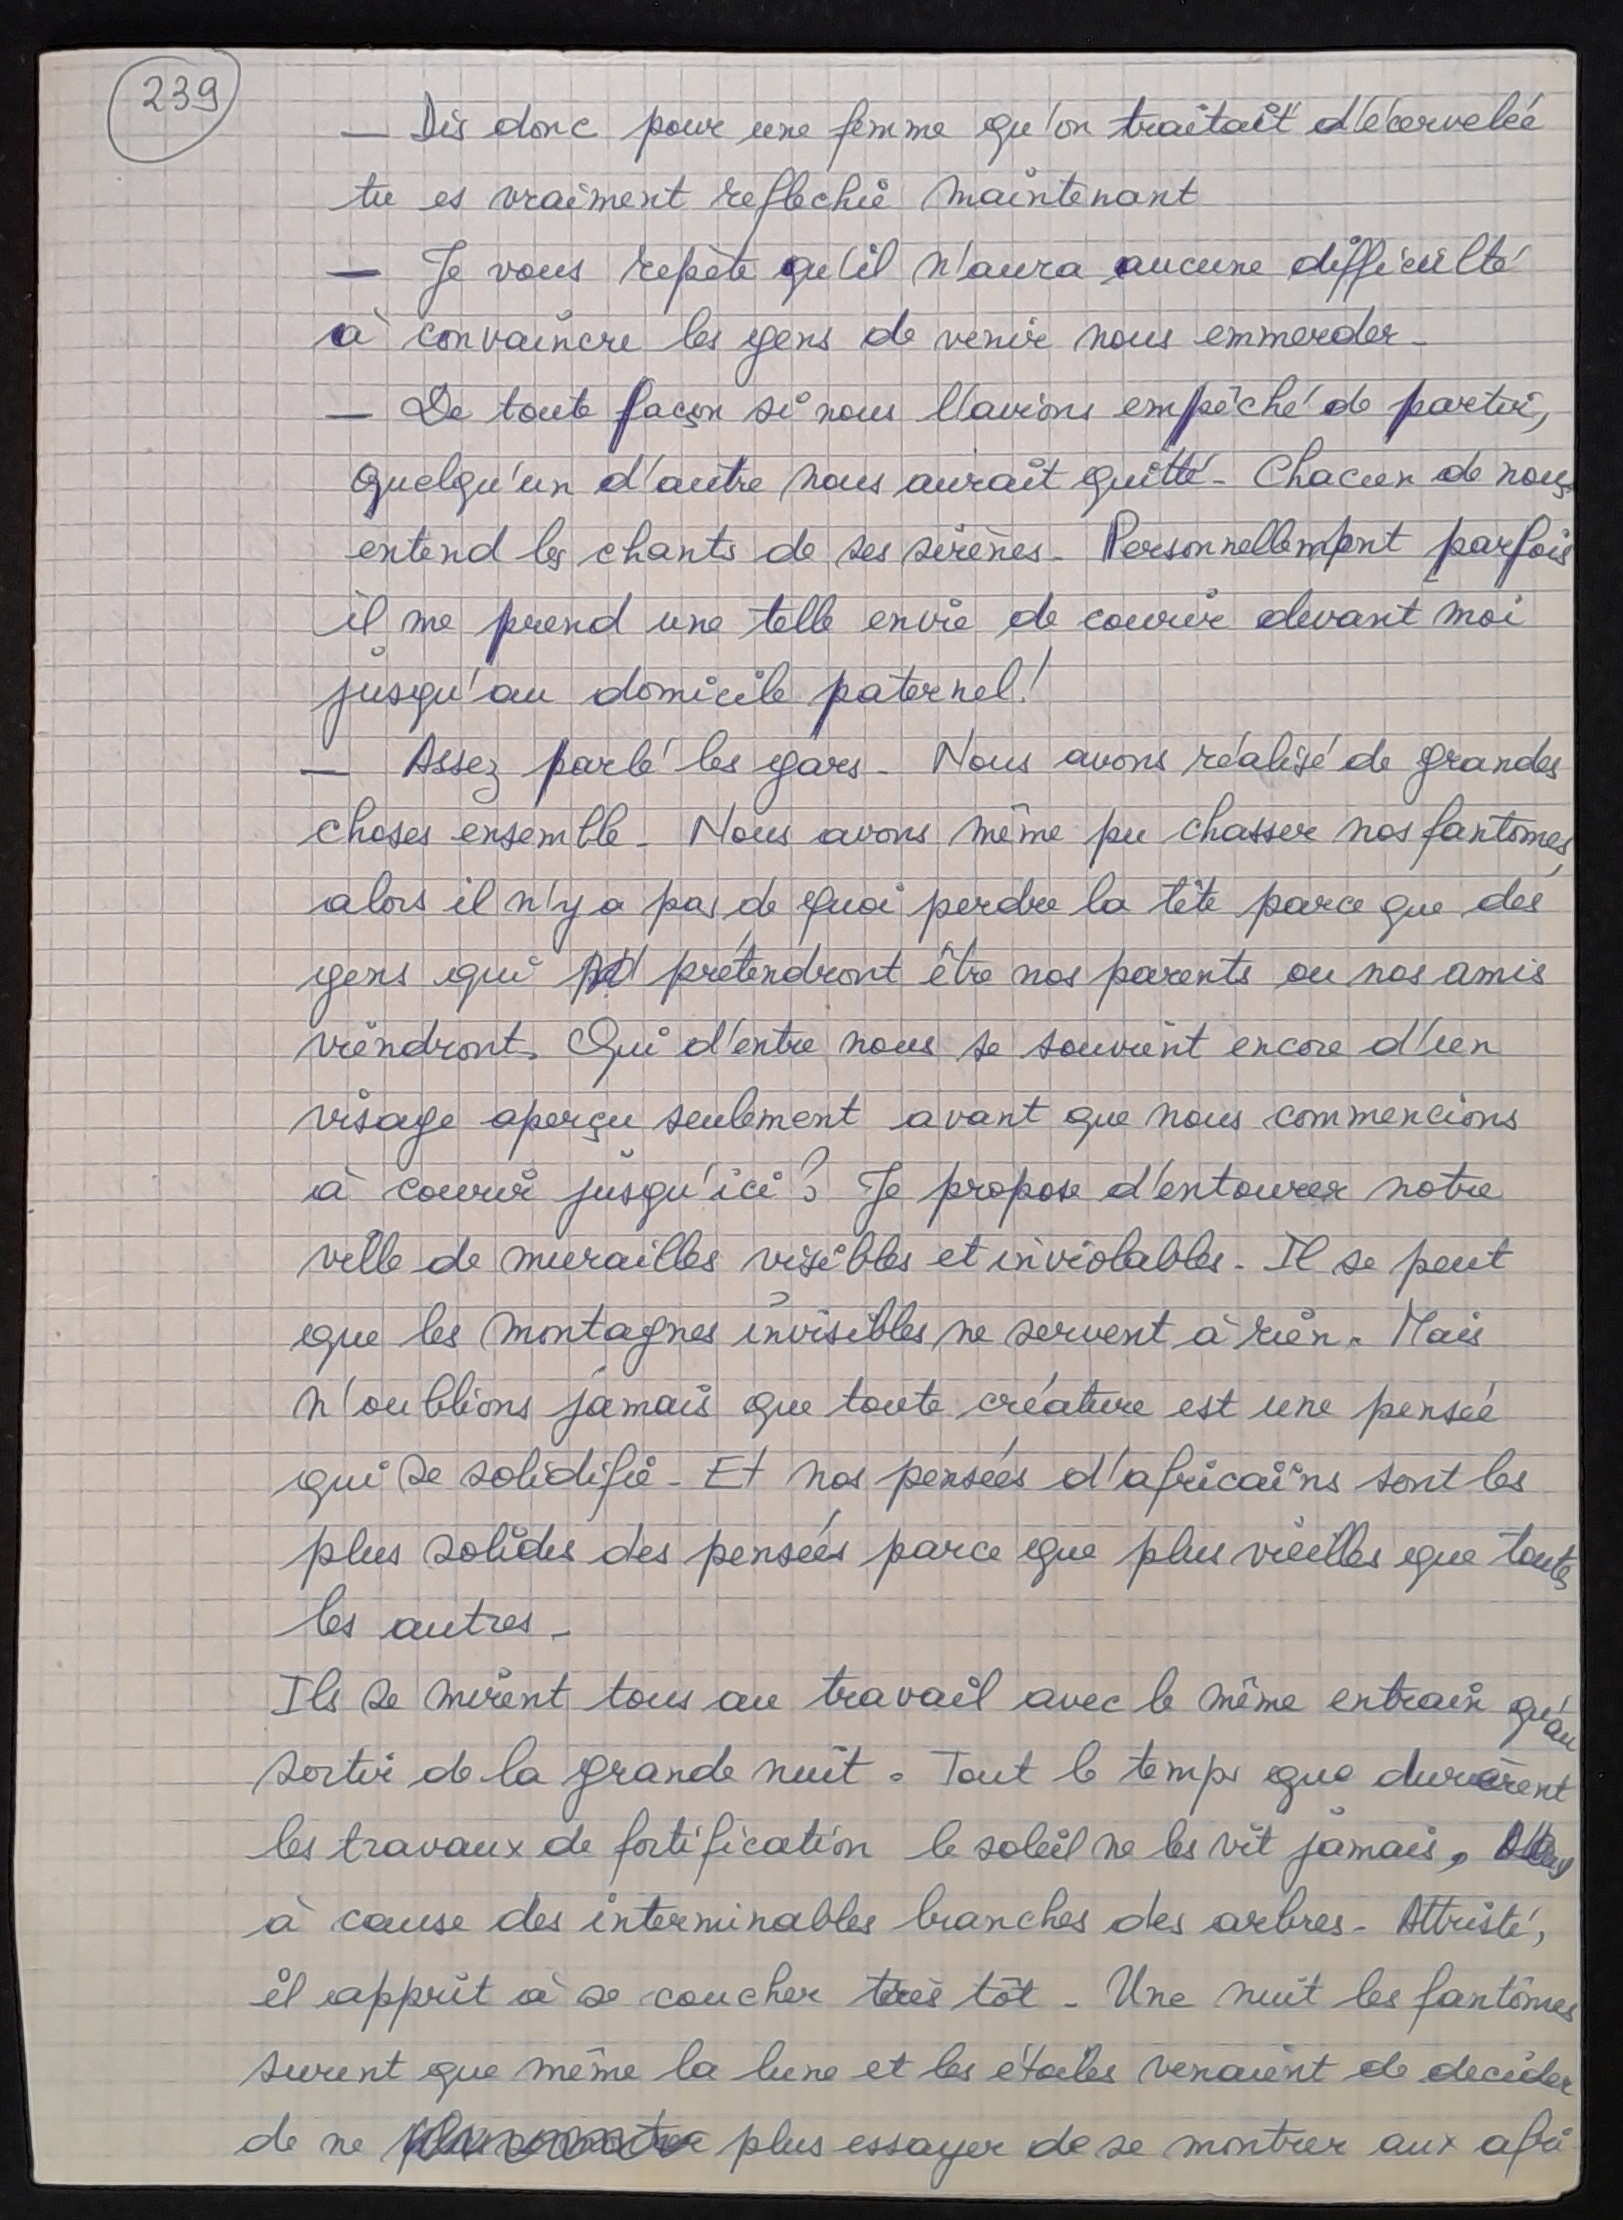 239
— Dis donc pour une femme qu'on traitait d'écervelée
tu es vraiment reflechie maintenant
— Je vous repète qu'il n'aura aucune difficulté
à convaincre les gens de venir nous emmerder.
— De toute façon si nous l'avions empêché de partir,
quelqu'un d'autre nous aurait quitté. Chacun de nous
entend les chants de ses sirènes. Personnellement parfois
il me prend une telle envie de courir devant moi
jusqu'au domicile paternel!
— Assez parlé les gars. Nous avons réalisé de grandes
choses ensemble. Nous avons même pu chasser nos fantômes,
alors il n'y a pas de quoi perdre la tête parce que des
gens qui prétendront être nos parents ou nos amis
viendront. Qui d'entre nous se souvient encore d'un
visage aperçu seulement avant que nous commencions
à courir jusqu'ici? Je propose d'entourer notre
ville de murailles visibles et inviolables. Il se peut
que les montagnes invisibles ne servent à rien. Mais
n'oublions jamais que toute créature est une pensée
qui se solidifie. Et nos pensées d'africains sont les
plus solides des pensées parce que plus vieilles que toutes
les autres.
Ils se mirent tous au travail avec le même entrain qu'au
sortir de la grande nuit. Tout le temps que durèrent
les travaux de fortification le soleil ne les vit jamais,
à cause des interminables branches des arbres. Attristé,
il apprit à se coucher très tôt. Une nuit les fantômes
surent que même la lune et les étoiles venaient de decider
de ne plus essayer de se montrer aux afri